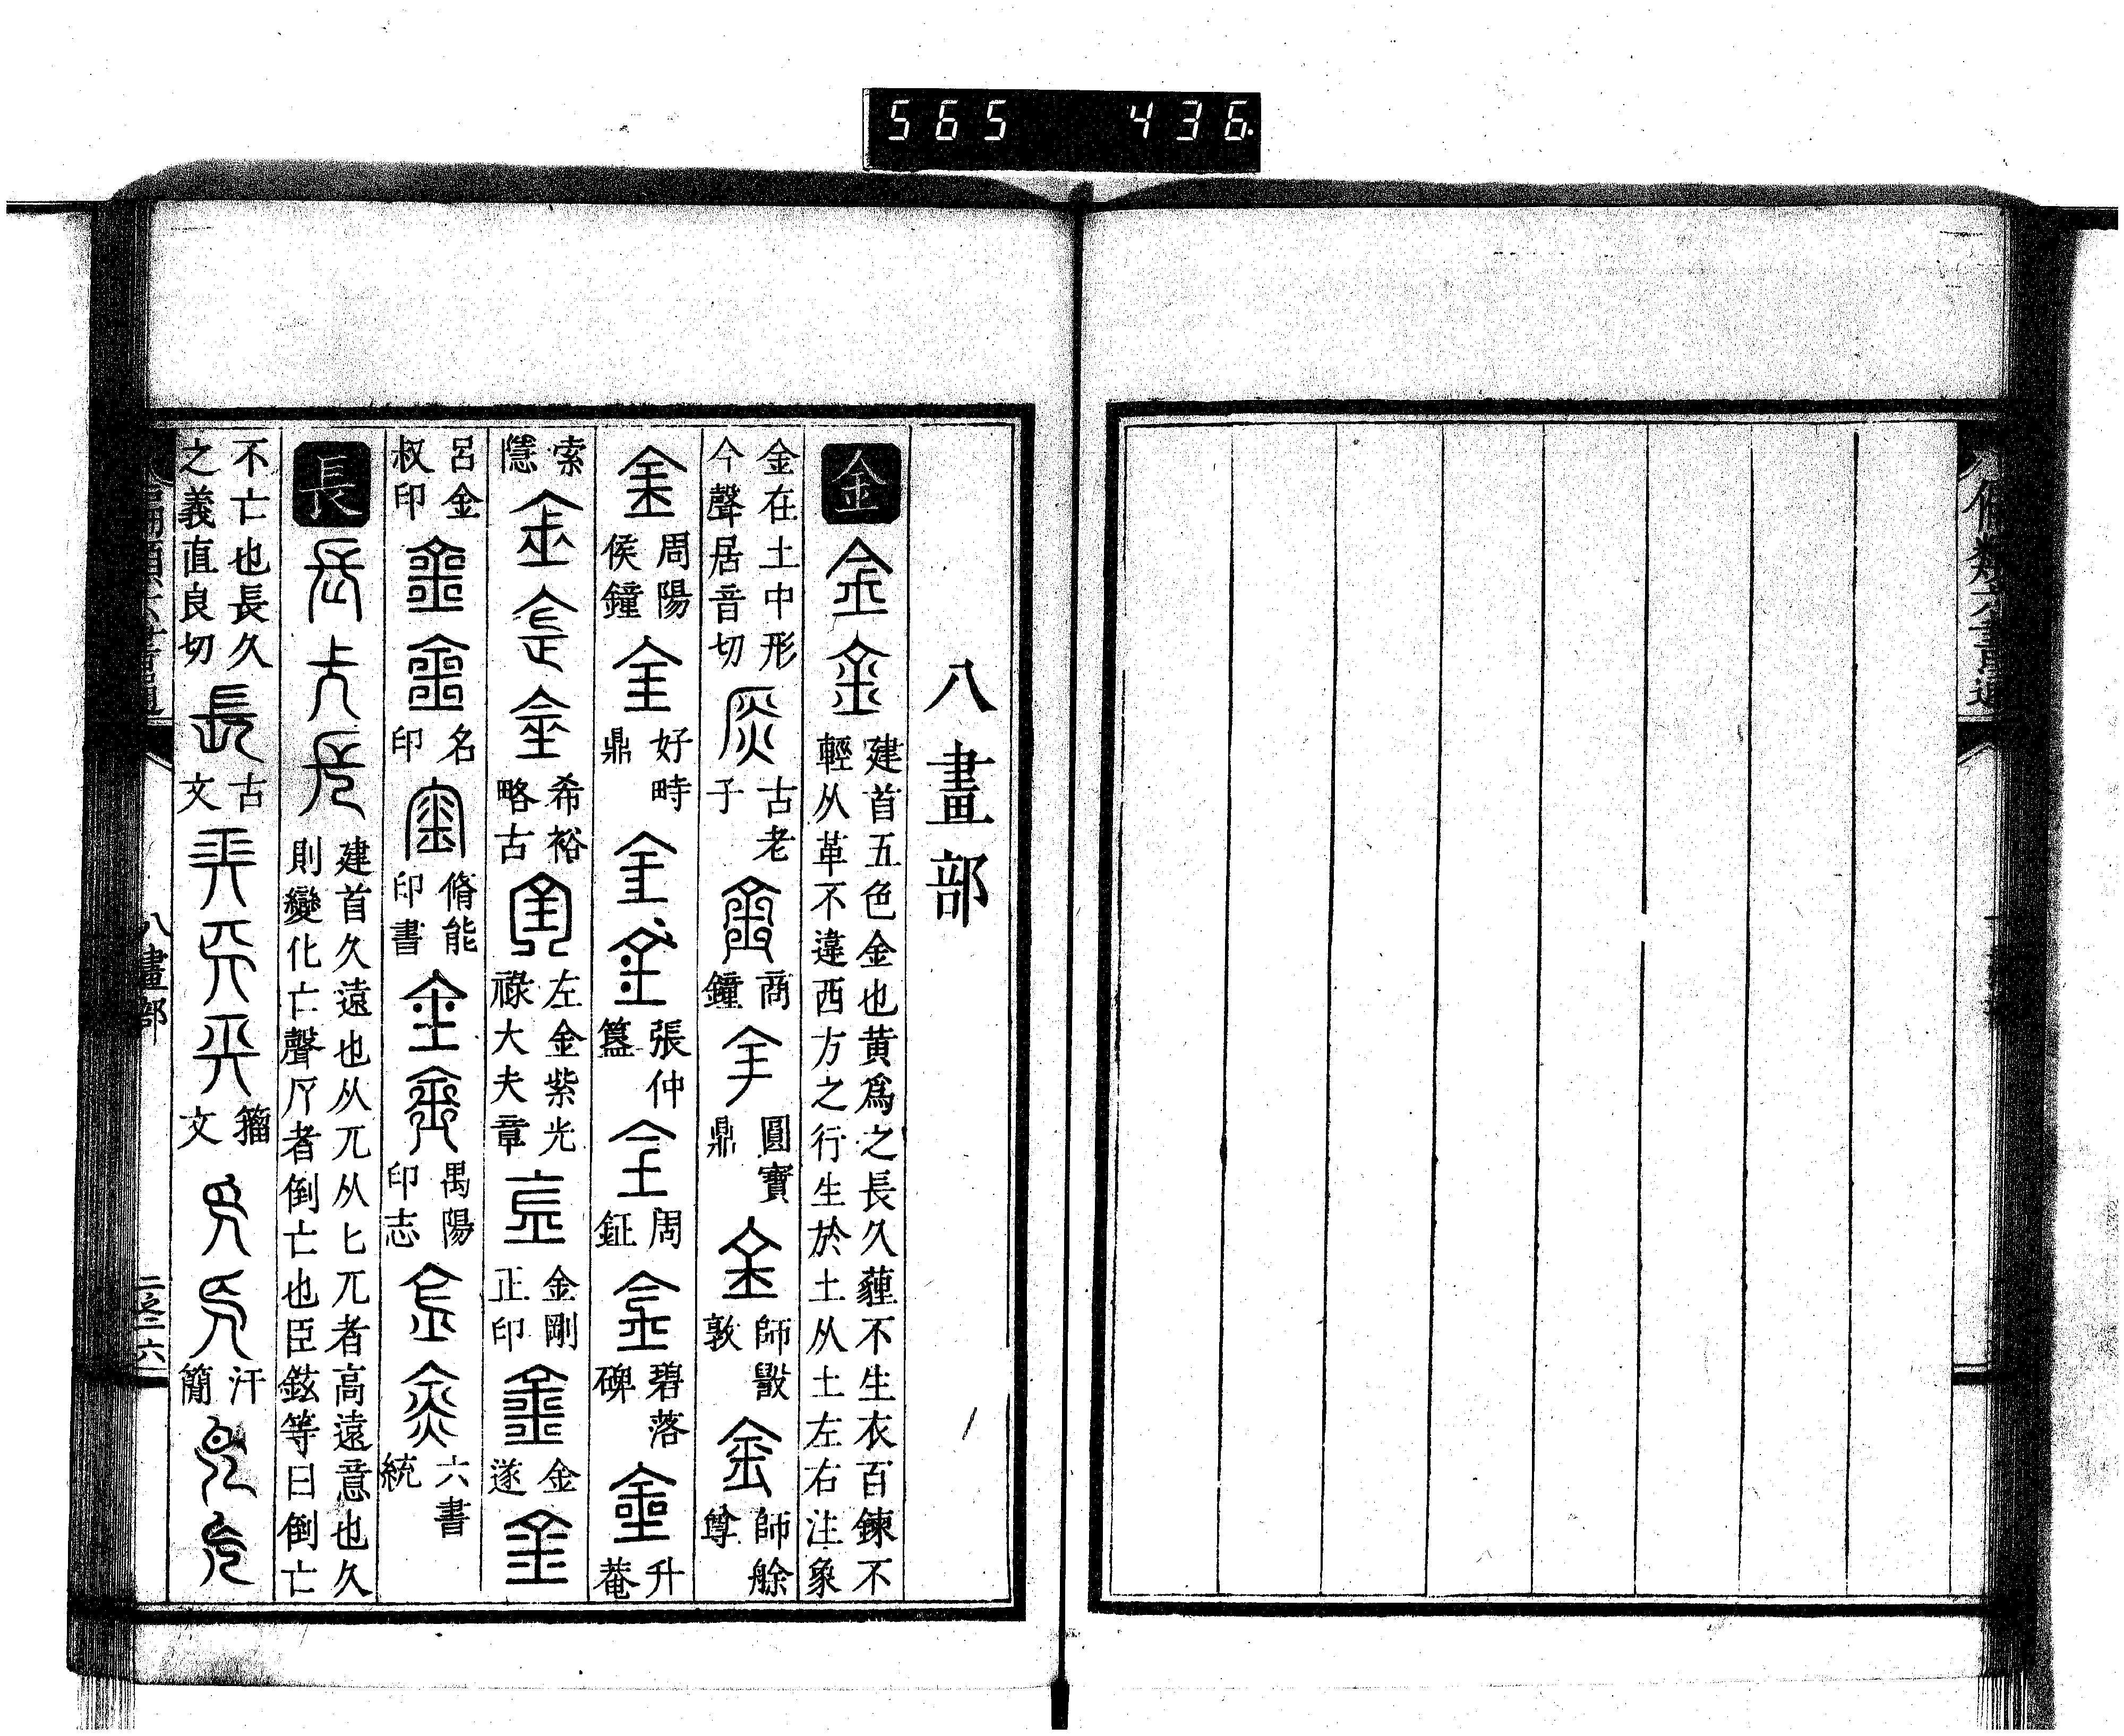 565 436
八畫部
金 金 金 建首五色金也黄爲之長久薶不生衣百鍊不
輕从革不違西方之行生於土从土左右注象
金在土中形
今聲居音切
古老子
商鐘
圓寶鼎
師𣪘敦
師艅尊
周陽侯鐘
好畤鼎
張仲簋
周鉦
碧落碑
升菴
索隱
希裕略古
左金紫光祿大夫章
金剛正印
金遂
呂金叔印
名印
脩能印書
禺陽印志
六書統
長 建首久遠也从兀从匕兀者高遠意也久
則變化亡聲𠂆者倒亡也臣鉉等曰倒亡
不亡也長久
之義直良切
古文
籀文
汗簡
八畫部
二之二 六